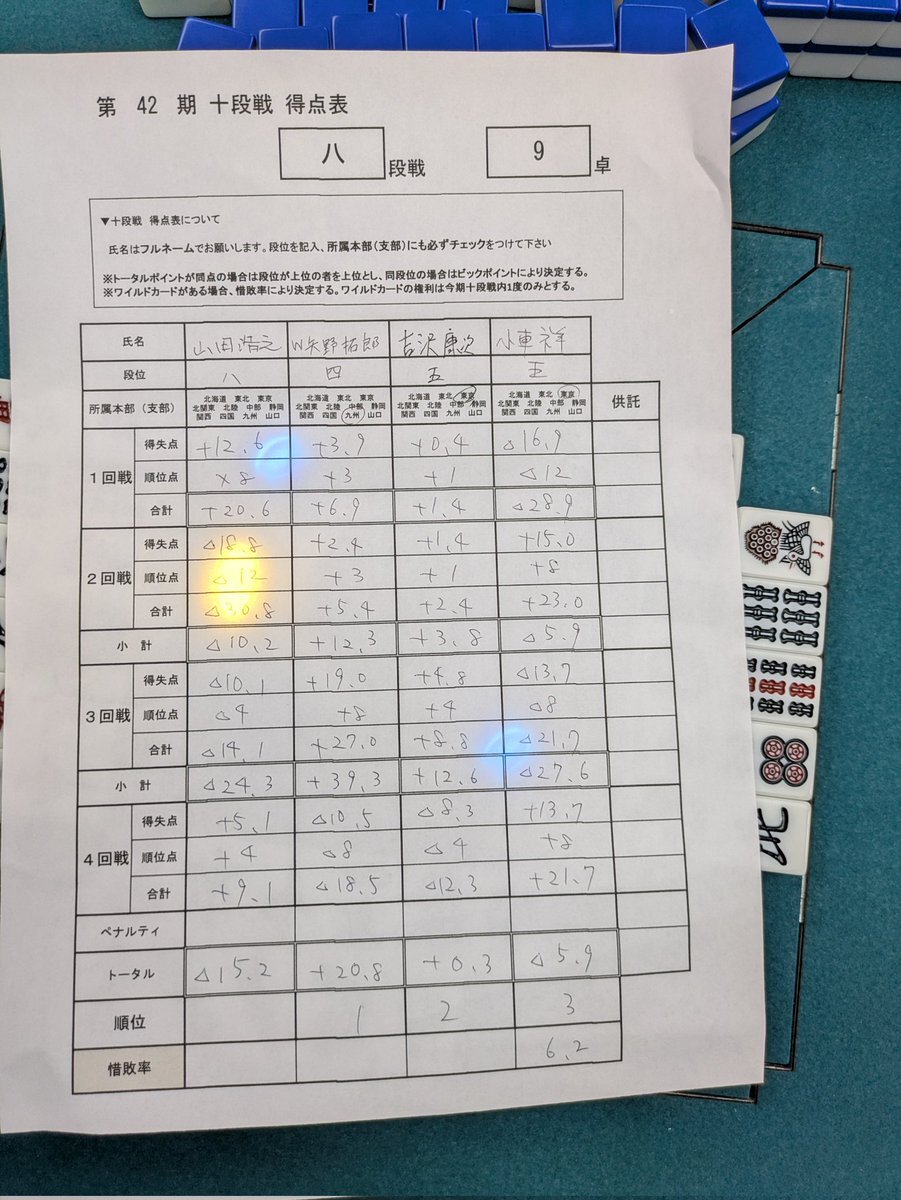 第 42 期 十段戦 得点表
八 段戦 9 卓
▼十段戦 得点表について
氏名はフルネームでお願いします。段位を記入、所属本部(支部)にも必ずチェックをつけて下さい
※トータルポイントが同点の場合は段位が上位の者を上位とし、同段位の場合はピックポイントにより決定する。
※ワイルドカードがある場合、惜敗率により決定する。ワイルドカードの権利は今期十段戦内1度のみとする。
氏名 山田浩之 W矢野拓郎 吉沢康次 小車祥
段位 八 四 五 五
所属本部(支部) 北海道 東北 東京 北海道 東北 東京 北海道 東北 東京 北海道 東北 東京 供託
北関東 北陸 中部 静岡 北関東 北陸 中部 静岡 北関東 北陸 中部 静岡 北関東 北陸 中部 静岡
関西 四国 九州 山口 関西 四国 九州 山口 関西 四国 九州 山口 関西 四国 九州 山口
1回戦 得失点 +12.6 +3.9 +0.4 △16.9
順位点 +8 +3 +1 △12
合計 +20.6 +6.9 +1.4 △28.9
2回戦 得失点 △18.8 +2.4 +1.4 +15.0
順位点 △12 +3 +1 +8
合計 △30.8 +5.4 +2.4 +23.0
小計 △10.2 +12.3 +3.8 △5.9
3回戦 得失点 △10.1 +19.0 +4.8 △13.7
順位点 △4 +8 +4 △8
合計 △14.1 +27.0 +8.8 △21.7
小計 △24.3 +39.3 +12.6 △27.6
4回戦 得失点 +5.1 △10.5 △8.3 +13.7
順位点 +4 △8 △4 +8
合計 +9.1 △18.5 △12.3 +21.7
ペナルティ
トータル △15.2 +20.8 +0.3 △5.9
順位 1 2 3
惜敗率 6.2